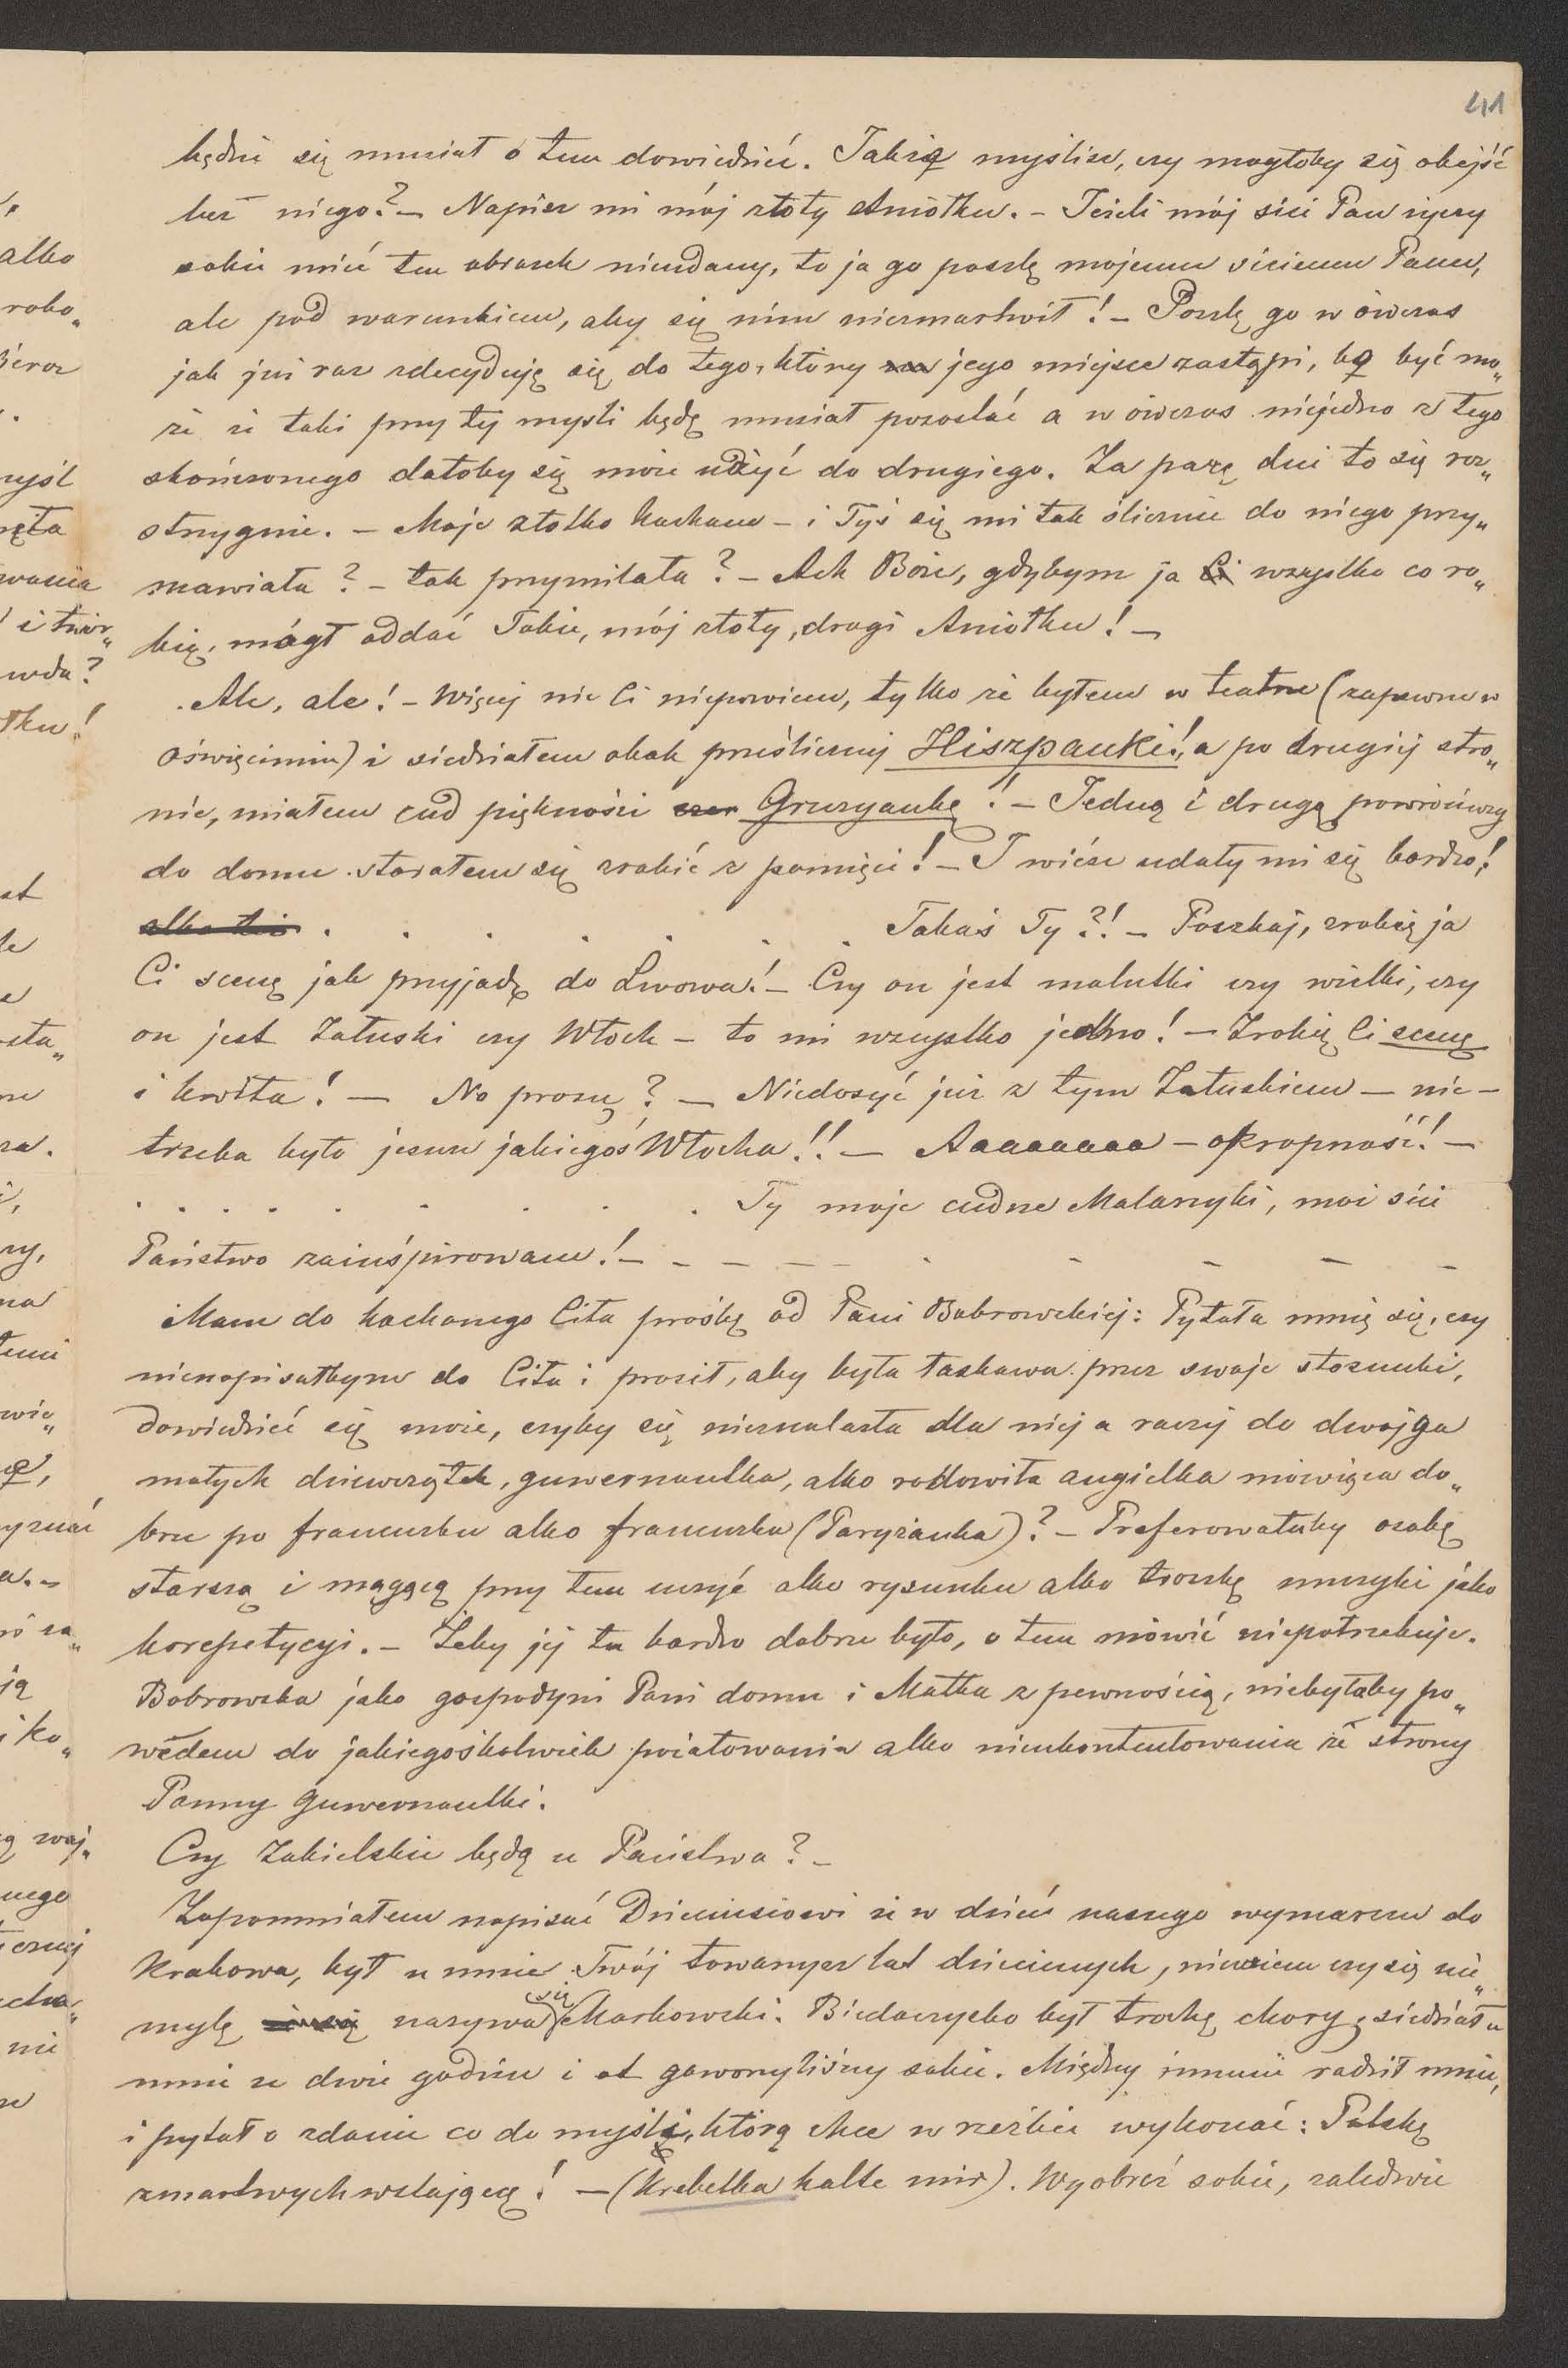 41
będzie się musiał o tem dowiedzieć. Jakżeż myślisz, czy mogłoby się obejść
bez niego? – Napisz mi mój złoty Aniołku. – Jeżeli mój sici Pan życzy
sobie mieć ten obrazek nieudany, to ja go poszlę mojemu siciemu Panu,
ale pod warunkiem, aby się nim niezmartwił! – Poszlę go w ówczas
jak już raz zdecyduję się do tego, który jego miejsce zastąpi, bo być mo„
że że taki przy tej myśli będę musiał pozostać a w ówczas niejedno z tego
skończonego dałoby się może użyć do drugiego. Za parę dni to się roz„
strzygnie. – Moje złotko kochane – i Tyś się mi tak ślicznie do niego przy„
mawiała? – tak przymilała? – Ach Boże, gdybym ja Ci wszystko co ro„
bię, mógł oddać Tobie, mój złoty, drogi Aniołku! –
Ale, ale! – Więcej nic Ci niepowiem, tylko że byłem w teatrze (zapewne w
Oświęcimiu) i siedziałem obok prześlicznej Hiszpanki!, a po drugiej stro„
nie, miałem cud piękności Gruzyankę! – Jedną i drugą powróciwszy
do domu starałem się zrobić z pamięci! – I wiesz udały mi się bardzo!
albo też . . . . . . . Takaś Ty?! – Poszkaj, zrobię ja
Ci scenę jak przyjadę do Lwowa! – Czy on jest malutki czy wielki, czy
on jest Załuski czy Włoch – to mi wszystko jedno! – Zrobię Ci scenę
i kwita! – No proszę? – Niedosyć już z tym Załuskiem – nie –
trzeba było jeszcze jakiegoś Włocha!! – Aaaaaaaa – okropność! –
. . . . . . . . . Ty moje cudne Malarzyki, moi sici
Państwo zainśpirowane! – – – – – – – – – –
Mam do kochanego Cita prośbę od Pani Bobrowskiej: Pytała mnię się, czy
nienapisałbym do Cita i prosił, aby była łaskawa przez swoje stosunki,
dowiedzieć się może, czyby się nieznalazła dla niej a raczej do dwojga
małych dziewczątek, guwernantka, albo rodowita angielka mówiąca do„
brze po francusku albo francuska (Paryżanka)? – Preferowałaby osobę
starszą i mogącą przy tem uczyć albo rysunku albo troszkę muzyki jako
korepetycyi. – Żeby jej tu bardzo dobrze było, o tem mówić niepotrzebuje.
Bobrowska jako gospodyni Pani domu i Matka z pewnością, niebyłaby po„
wodem do jakiegośkolwiek pożałowania albo nieukontentowania ze strony
Panny guwernantki.
Czy Zabielskie będą u Państwa? –
Zapomniałem napisać Dzieciusiowi że w dzień naszego wymarszu do
Krakowa, był u mnie Twój towarzysz lat dziecinnych, niewiem czy się nie„
mylę nazywa się Markowski. Biedaczysko był trochę chory, siedział u
mnie ze dwie godzin i ot gaworzyliśmy sobie. Między innemi radził mnie,
i pytał o zdanie co do myśli, którą chce w rzeźbie wykonać: Polskę
zmartwychwstającą! – (Krebelka halte mir). Wyobraź sobie, zaledwie